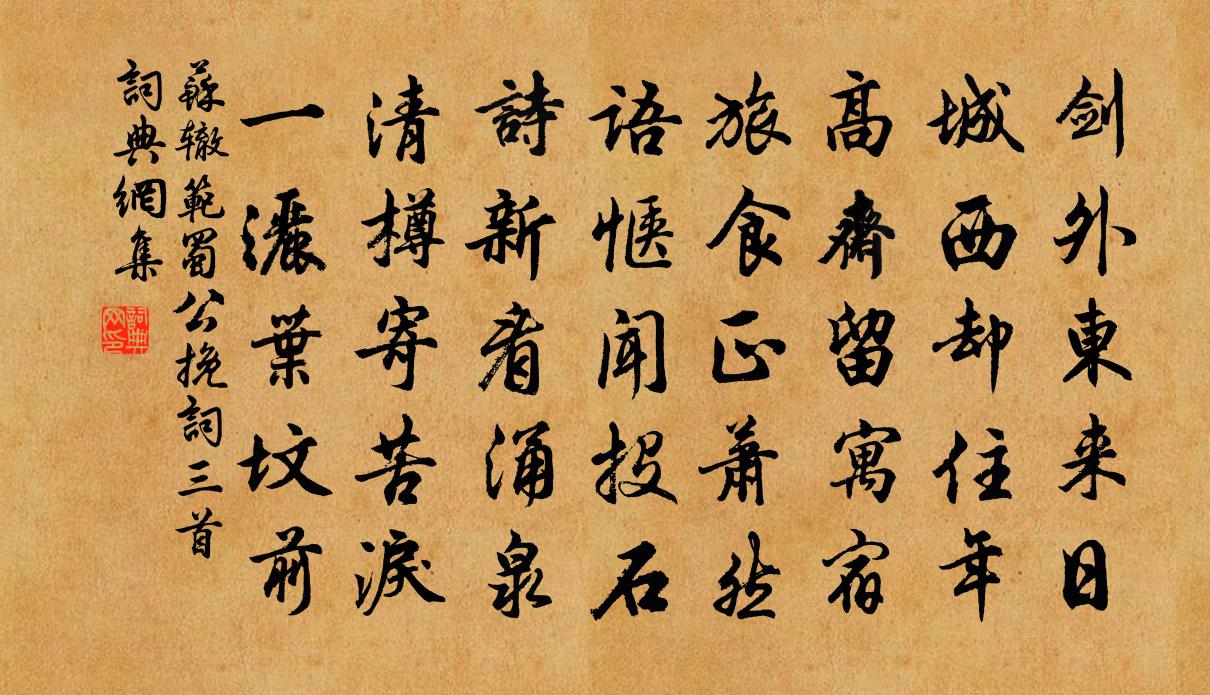 剑外東来日
城西却住年
高齋留寓宿
旅食正蕭然
語愜聞投石
詩新看涌泉
清樽寄苦淚
一灑葉墳前
蘇辙範蜀公挽詞三首
詞典網集
詞典
网印